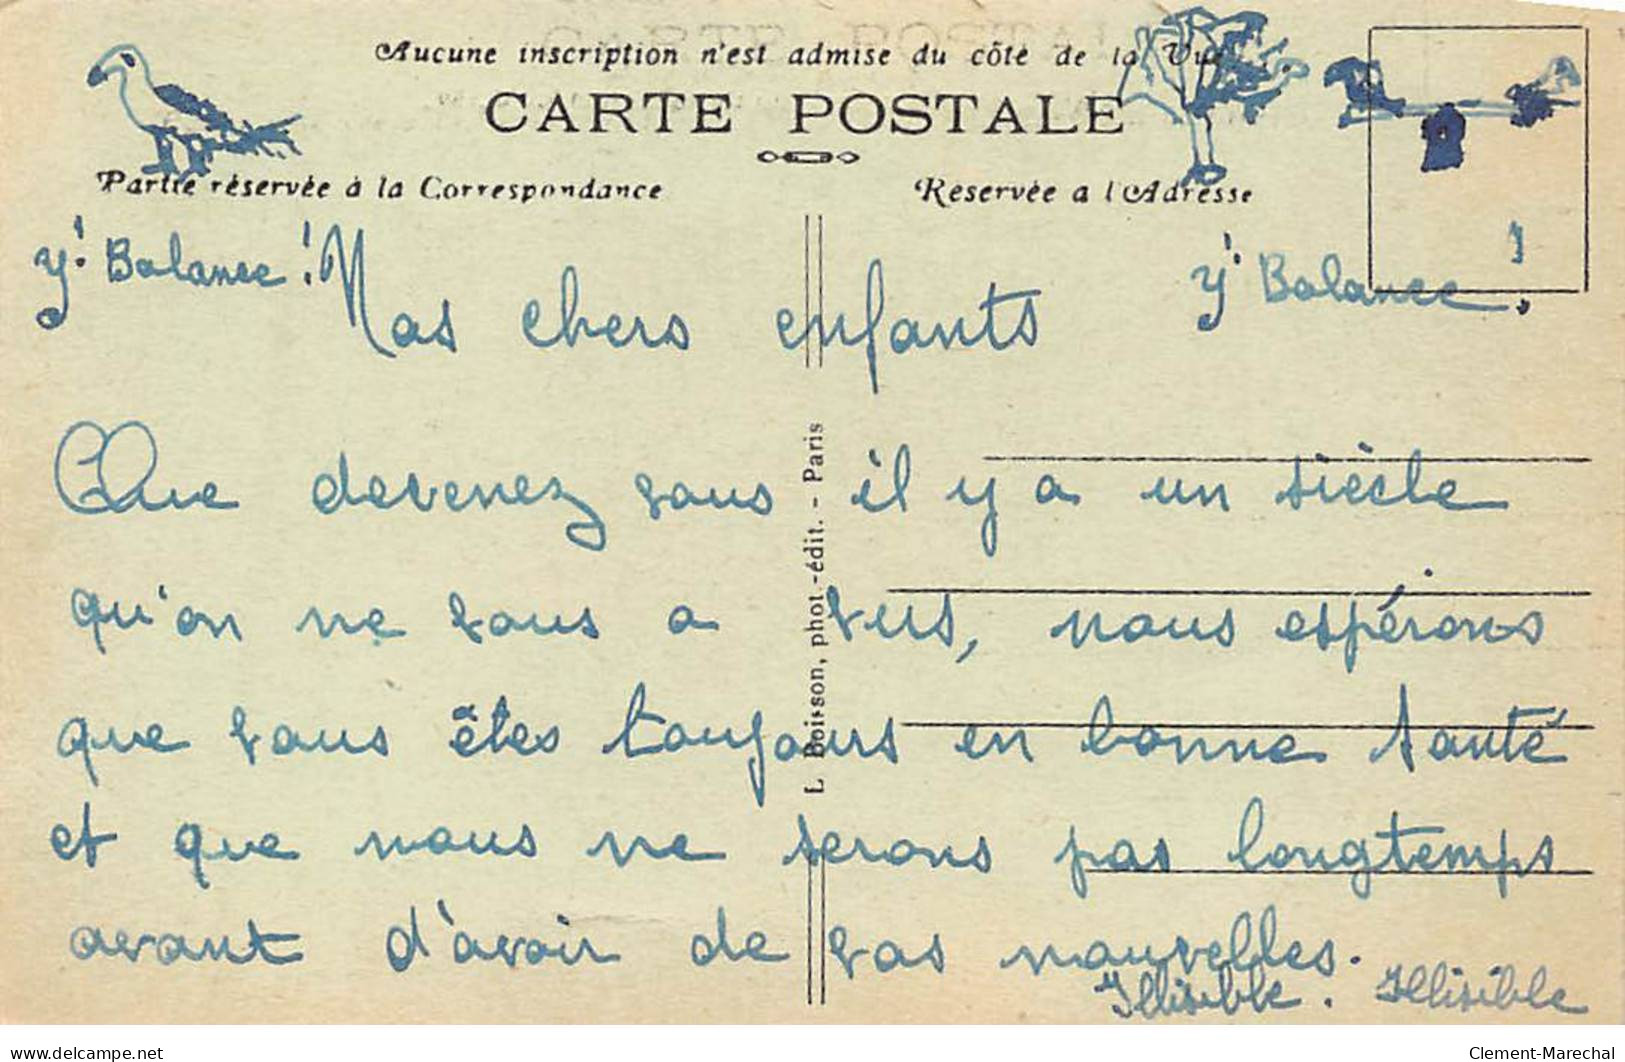 Aucune inscription n'est admise du côté de la Vue
CARTE POSTALE
Partie réservée à la Correspondance
Reservée a l'Adresse
y' Balance !
y' Balance !
Mas chers enfants
Que devenez vous il y a un siècle
qu'on ne vous a vus, nous espérons
que vous êtes toujours en bonne santé
et que nous ne serons pas longtemps
avant d'avoir de vos nouvelles.
Illisible. Illisible
L. Boisson, phot.-édit. - Paris
www.delcampe.net
Clement-Marechal